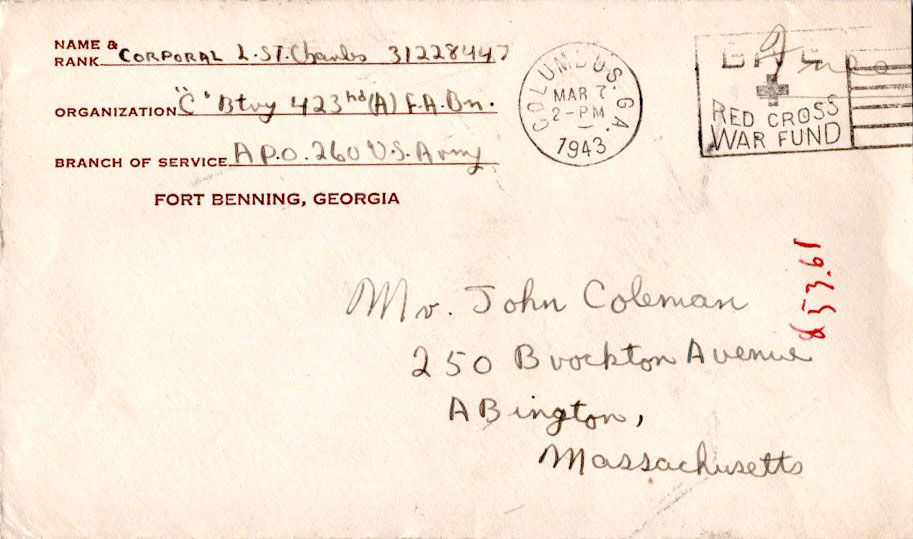 NAME & RANK CORPORAL L. ST. Charles 31228447
ORGANIZATION "C" Btry 423rd (A) F.A.Bn.
BRANCH OF SERVICE A P.O. 260 U.S. Army
FORT BENNING, GEORGIA
COLUMBUS, GA.
MAR 7
2-PM
1943
Free
RED CROSS
WAR FUND
853.61
Mr. John Coleman
250 Brockton Avenue
ABington,
Massachusetts